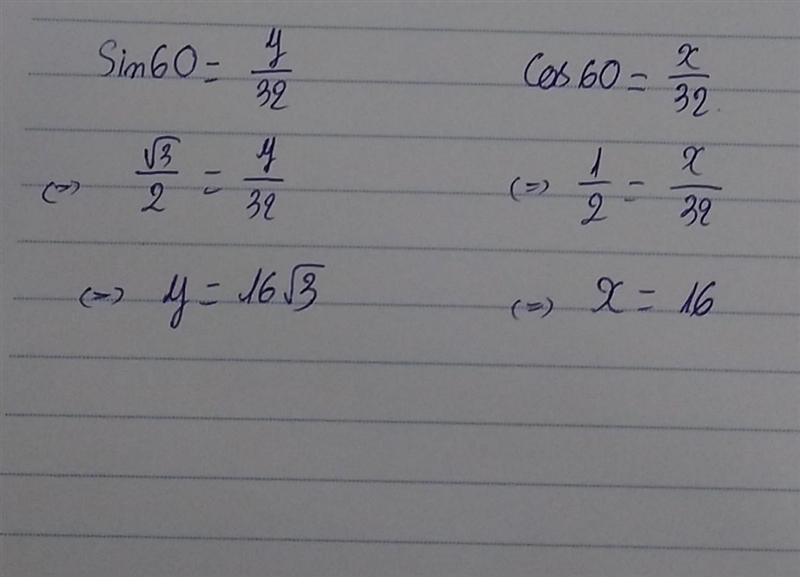 Sin60 = y/32
(=) √3/2 = y/32
(=) y = 16√3
Cos60 = x/32
(=) 1/2 = x/32
(=) x = 16